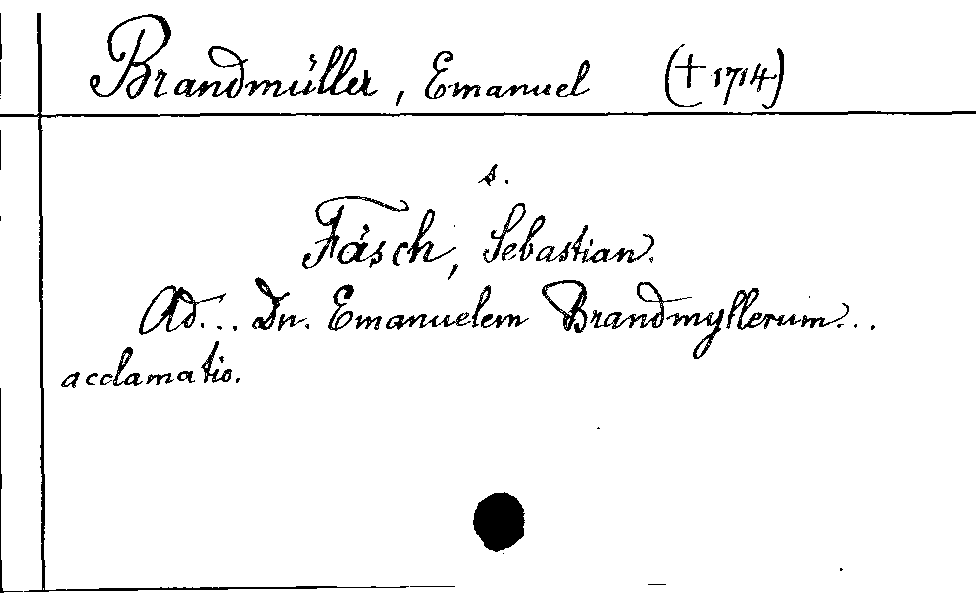 Brandmüller, Emanuel († 1714)
s.
Fäsch, Sebastian.
Ad... Dn. Emanuelem Brandmyllerum...
acclamatio.